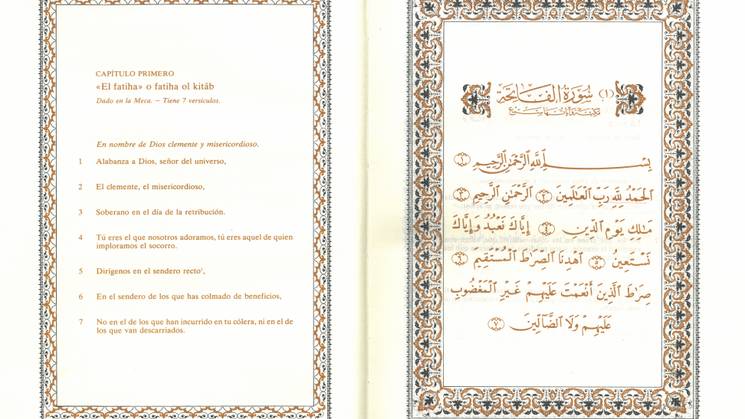 CAPÍTULO PRIMERO
«El fatiha» o fatiha ol kitâb
Dado en la Meca. — Tiene 7 versículos.
En nombre de Dios clemente y misericordioso.
1 Alabanza a Dios, señor del universo,
2 El clemente, el misericordioso,
3 Soberano en el día de la retribución.
4 Tú eres el que nosotros adoramos, tú eres aquel de quien
imploramos el socorro.
5 Dirígenos en el sendero recto¹,
6 En el sendero de los que has colmado de beneficios,
7 No en el de los que han incurrido en tu cólera, ni en el de
los que van descarriados.
(١) سُورَةُ الفَاتِحَة
بِسْمِ ٱللَّهِ ٱلرَّحْمَٰنِ ٱلرَّحِيمِ ١
ٱلْحَمْدُ لِلَّهِ رَبِّ ٱلْعَٰلَمِينَ ٢ ٱلرَّحْمَٰنِ ٱلرَّحِيمِ ٣
مَٰلِكِ يَوْمِ ٱلدِّينِ ٤ إِيَّاكَ نَعْبُدُ وَإِيَّاكَ
نَسْتَعِينُ ٥ ٱهْدِنَا ٱلصِّرَٰطَ ٱلْمُسْتَقِيمَ ٦
صِرَٰطَ ٱلَّذِينَ أَنْعَمْتَ عَلَيْهِمْ غَيْرِ ٱلْمَغْضُوبِ
عَلَيْهِمْ وَلَا ٱلضَّآلِّينَ ٧